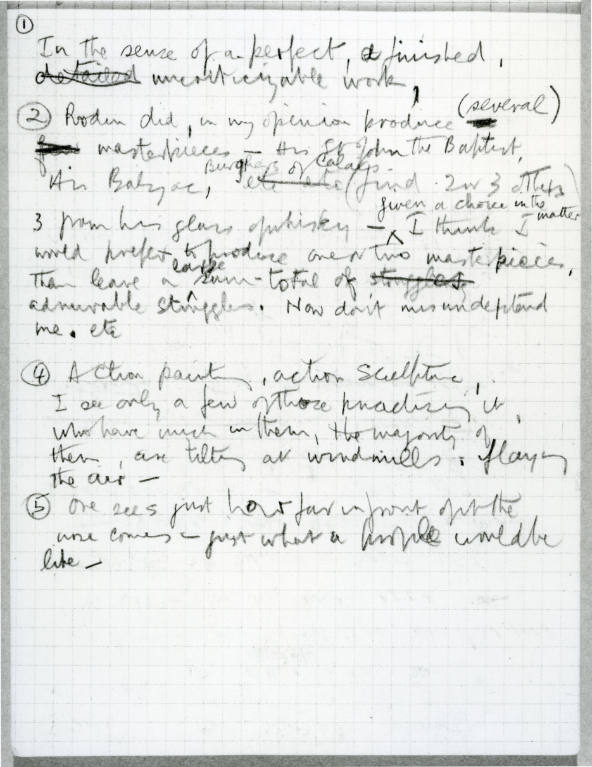 ①
In the sense of a perfect, a finished,
detailed uncriticizable work,
② Rodin did, in my opinion produce (several)
few masterpieces – His St John the Baptist,
Burghers of Calais
His Balzac, etc etc (find 2 or 3 others)
given a choice in the matter
3 from his glass of whisky – I think I
would prefer to produce one or two masterpieces,
large
than leave a sum-total of struggles
admirable struggles. Now don't misunderstand
me. etc
④ Action painting, action sculpture,
I see only a few of those practising it,
who have much in them, the majority of
them, are tilting at windmills, flaying
the air –
⑤ One sees just how far in front of it the
nose comes – just what a profile would be
like –